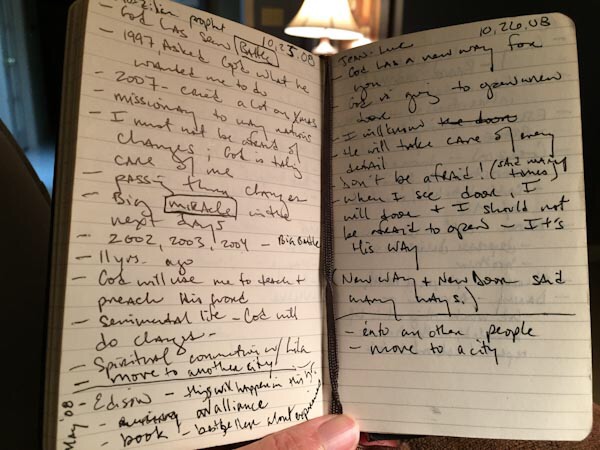 prophet 10,25.08
- God has seen Battles
- 1997, Asked God what he
wanted me to do
- 2007 - cried a lot on
- missionary to many nations
- I must not be afraid of
changes; God is taking
care of me
- passing thru changes
- Big miracle in the
next days
- 2002, 2003, 2004 - Big Battle
- 11 yrs. ago
- God will use me to teach +
preach His word
- sentimental life - God will
do changes -
- Spiritual connection w/
- move to another city/
May '08 - Edison - this will happen in this
- an alliance
- book - about
10,26.08
Jean-Luc
- God has a new way for
you
- God is going to open new
door
- I will know the door
- He will take care of every
detail
- Don't be afraid! (said many
times)
- when I see door, I
will door + I should not
be afraid to open - It's
His way
(New way + New Door said
many ways.)
- into another people
- move to a city